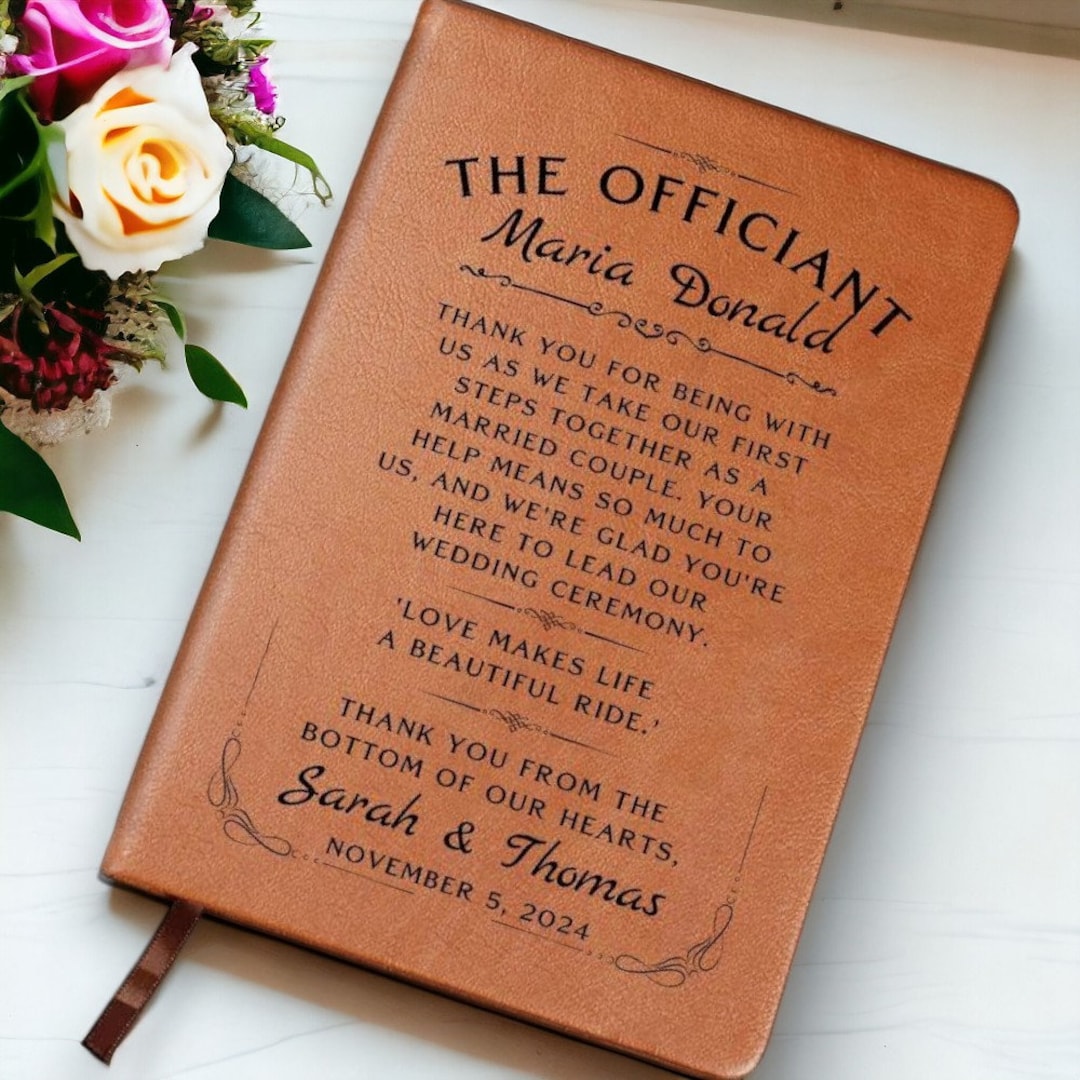 THE OFFICIANT
Maria Donald
THANK YOU FOR BEING WITH
US AS WE TAKE OUR FIRST
STEPS TOGETHER AS A
MARRIED COUPLE. YOUR
HELP MEANS SO MUCH TO
US, AND WE'RE GLAD YOU'RE
HERE TO LEAD OUR
WEDDING CEREMONY.
'LOVE MAKES LIFE
A BEAUTIFUL RIDE.'
THANK YOU FROM THE
BOTTOM OF OUR HEARTS,
Sarah & Thomas
NOVEMBER 5, 2024